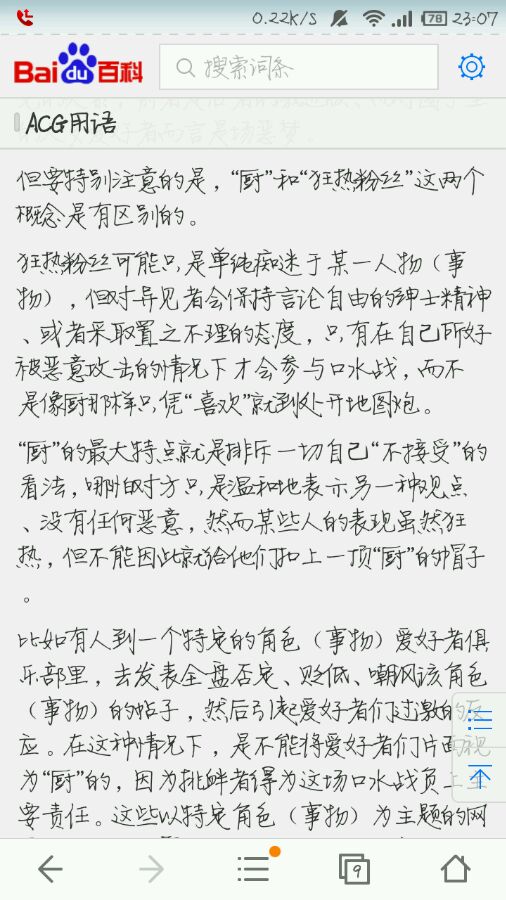 0.22K/S 78 23:07
Bai du 百科 搜索词条
ACG用语
但要特别注意的是，“厨”和“狂热粉丝”这两个
概念是有区别的。
狂热粉丝可能只是单纯痴迷于某一人物（事
物），但对异见者会保持言论自由的绅士精神
、或者采取置之不理的态度，只有在自己所好
被恶意攻击的情况下才会参与口水战，而不
是像厨那样只凭“喜欢”就到处开地图炮。
“厨”的最大特点就是排斥一切自己“不接受”的
看法，哪怕对方只是温和地表示另一种观点
、没有任何恶意，然而某些人的表现虽然狂
热，但不能因此就给他们扣上一顶“厨”的帽子
。
比如有人到一个特定的角色（事物）爱好者俱
乐部里，去发表全盘否定、贬低、嘲风该角色
（事物）的帖子，然后引起爱好者们过激的反
应。在这种情况下，是不能将爱好者们片面视
为“厨”的，因为挑衅者得为这场口水战负上主
要责任。这些以特定角色（事物）为主题的网
9